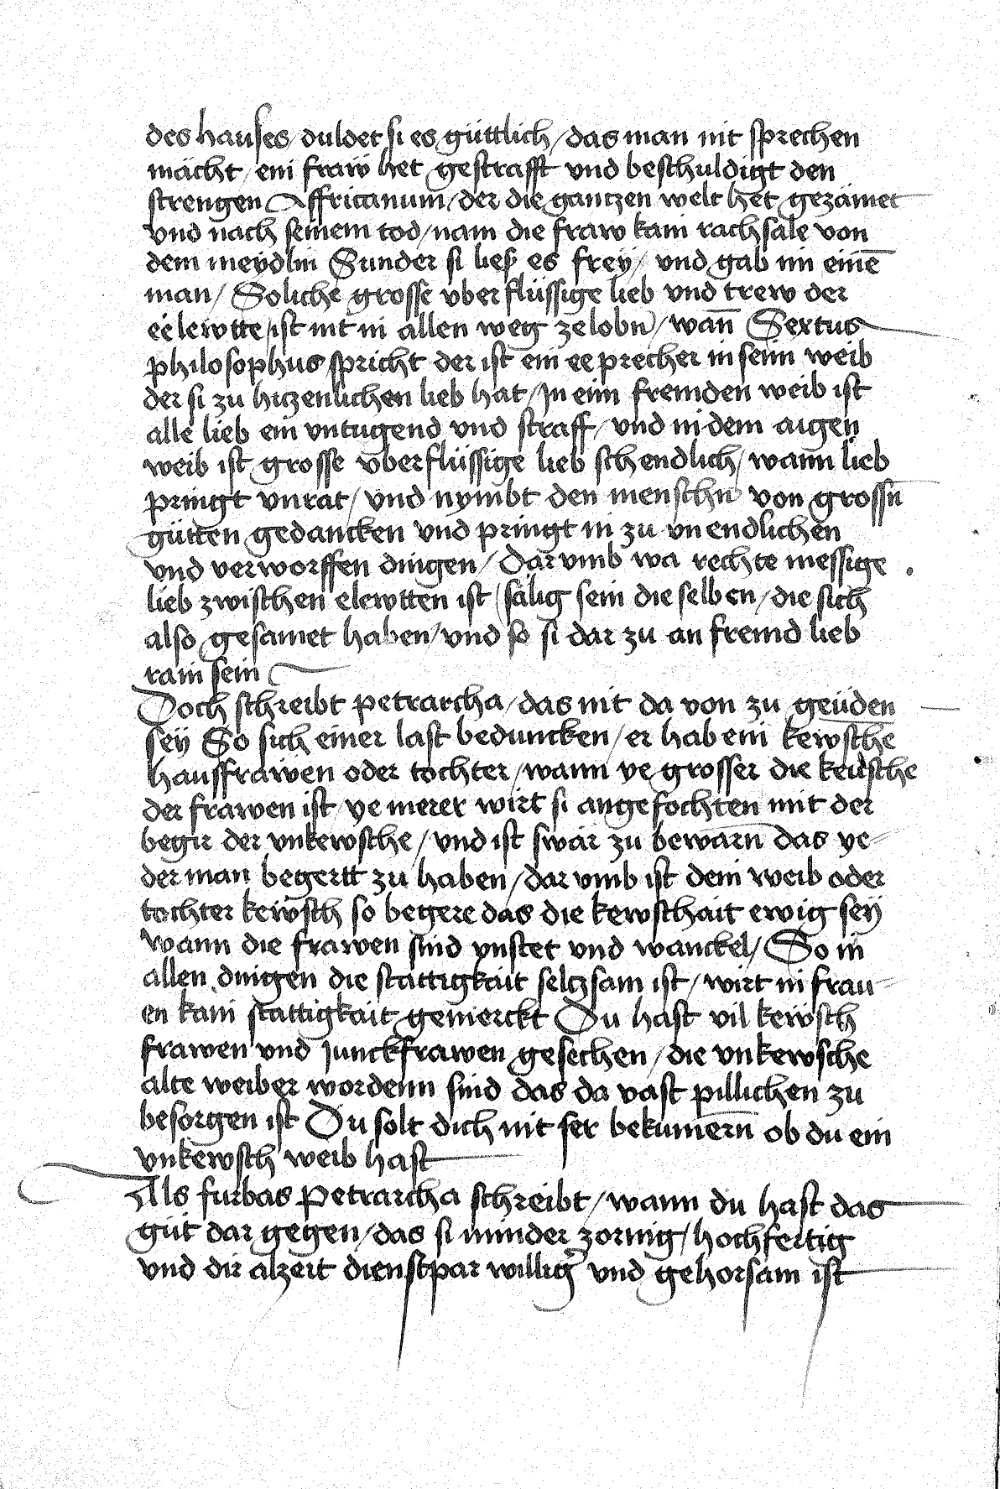 des hauses / duldet si es güttlich / das man nit sprechen
mächt / ein fraẅ het gestrafft vnd beschuldigt den
strengen Affricanum / der die gantzen welt het gezämet
vnd nach seinem tod / nam die fraw kain rachsale von
dem meydlin Sunder si ließ es freÿ / vnd gab im einē
man / Soliche grosse vberflüssige lieb vnd trew der
eelewtte / ist nit in allen weg zelobn / wan̄ Sextus
philosophus spricht der ist ein eeprecher in seim weib
der si zu hitzenlichen lieb hat / In eim fremden weib ist
alle lieb ein vntugend vnd straff / vnd in dem aigen
weib ist grosse vberflüssige lieb schendlich / wann lieb
pringt vnrat / vnd nymbt den menschn von grossn̄
gütten gedancken vnd pringt in zu vnendlichen
vnd verworffen dingen / Darvmb wa rechte messige
lieb zwischen elewtten ist / sälig sein die selben / die sich
also gesamet haben / vnd so si dar zu an fremd lieb
rain sein
Doch schreibt petrarcha / das nit da von zu geüden
seÿ So sich einer last beduncken / er hab ein kewsche
hauffrawen oder tochter / wann ye grosser die keüsche
der frawen ist / ye merer wirt si angefochten mit der
begir der vnkewsche / vnd ist swär zu bewarn̄ das ye-
der man begertt zu haben / dar vmb ist dein weib oder
tochter keẅsch so begere das die kewschait ewig seÿ
wann die frawen sind vnstet vnd wanckel / So in
allen dingen die stättigkait seltzsam ist / wirt in frau-
en kain stattigkait gemerckt Du hast vil keẅsch
frawen vnd Junckfrawen gesechen / die vnkewsche
alte weiber wordenn sind das da vast pillichen zu
besorgen ist Du solt dich nit ser bekumern̄ ob du ein
vnkewsch weib hast
Als furbas Petrarcha schreibt / wann du hast das
güt dar gegen / das si minder zornig / hochfertig
vnd dir alzeit dienstpar willig vnd gehorsam ist